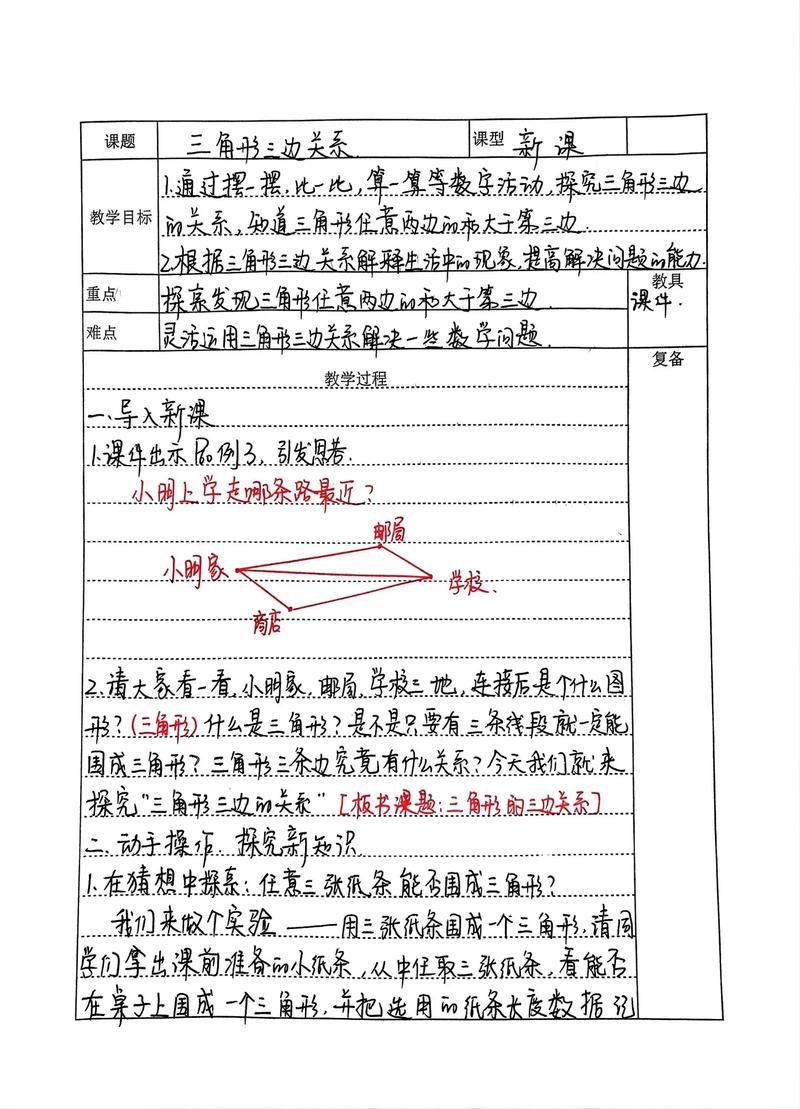 课题 三角形三边关系 课型 新课
教学目标
1.通过摆一摆,比一比,算一算等数字活动,探究三角形三边
的关系,知道三角形任意两边的和大于第三边.
2.根据三角形三边关系解释生活中的现象,提高解决问题的能力.
重点 探索发现三角形任意两边的和大于第三边. 教具
难点 灵活运用三角形三边关系解决一些数学问题. 课件.
教学过程 复备
一、导入新课
1.课件出示 例3,引发思考.
小明上学走哪条路最近?
邮局
小明家
学校.
商店
2.请大家看一看,小明家,邮局,学校三地,连接后是个什么图
形?(三角形)什么是三角形?是不是只要有三条线段就一定能
围成三角形?三角形三条边究竟有什么关系?今天我们就来
探究“三角形三边的关系”[板书课题:三角形的三边关系]
二、动手操作,探究新知识.
1.在猜想中探索:任意三张纸条能否围成三角形?
我们来做个实验——用三张纸条围成一个三角形,请同
学们拿出课前准备的小纸条,从中任取三张纸条,看能否
在桌子上围成一个三角形,并把选用的纸条长度数据记